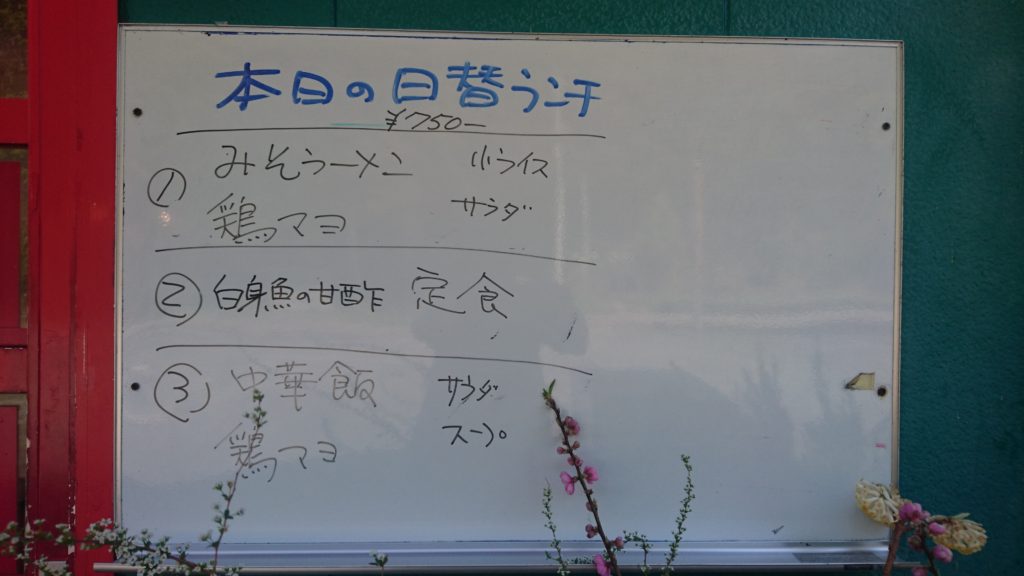 本日の日替ランチ
¥750-
① みそラーメン 小ライス
鶏マヨ サラダ
② 白身魚の甘酢 定食
③ 中華飯 サラダ
鶏マヨ スープ